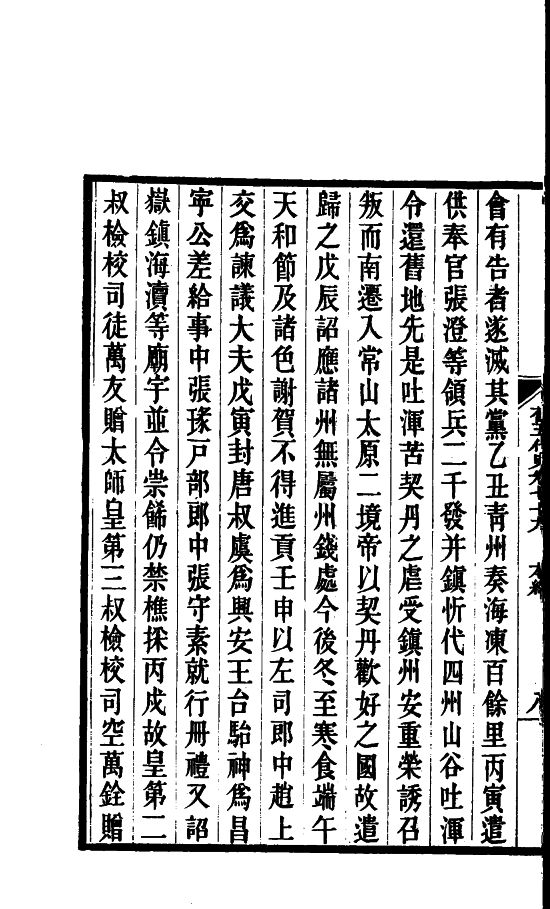 會有告者遂滅其黨乙丑青州奏海凍百餘里丙寅遣
供奉官張澄等領兵二千發并鎮忻代四州山谷吐渾
令還舊地先是吐渾苦契丹之虐受鎮州安重榮誘召
叛而南遷入常山太原二境帝以契丹歡好之國故遣
歸之戊辰詔應諸州無屬州錢處今後冬至寒食端午
天和節及諸色謝賀不得進貢壬申以左司郎中趙上
交爲諫議大夫戊寅封唐叔虞爲興安王台駘神爲昌
寧公差給事中張瑑戸部郎中張守素就行冊禮又詔
嶽鎮海瀆等廟宇並令崇飾仍禁樵採丙戌故皇第二
叔檢校司徒萬友贈太師皇第三叔檢校司空萬銓贈